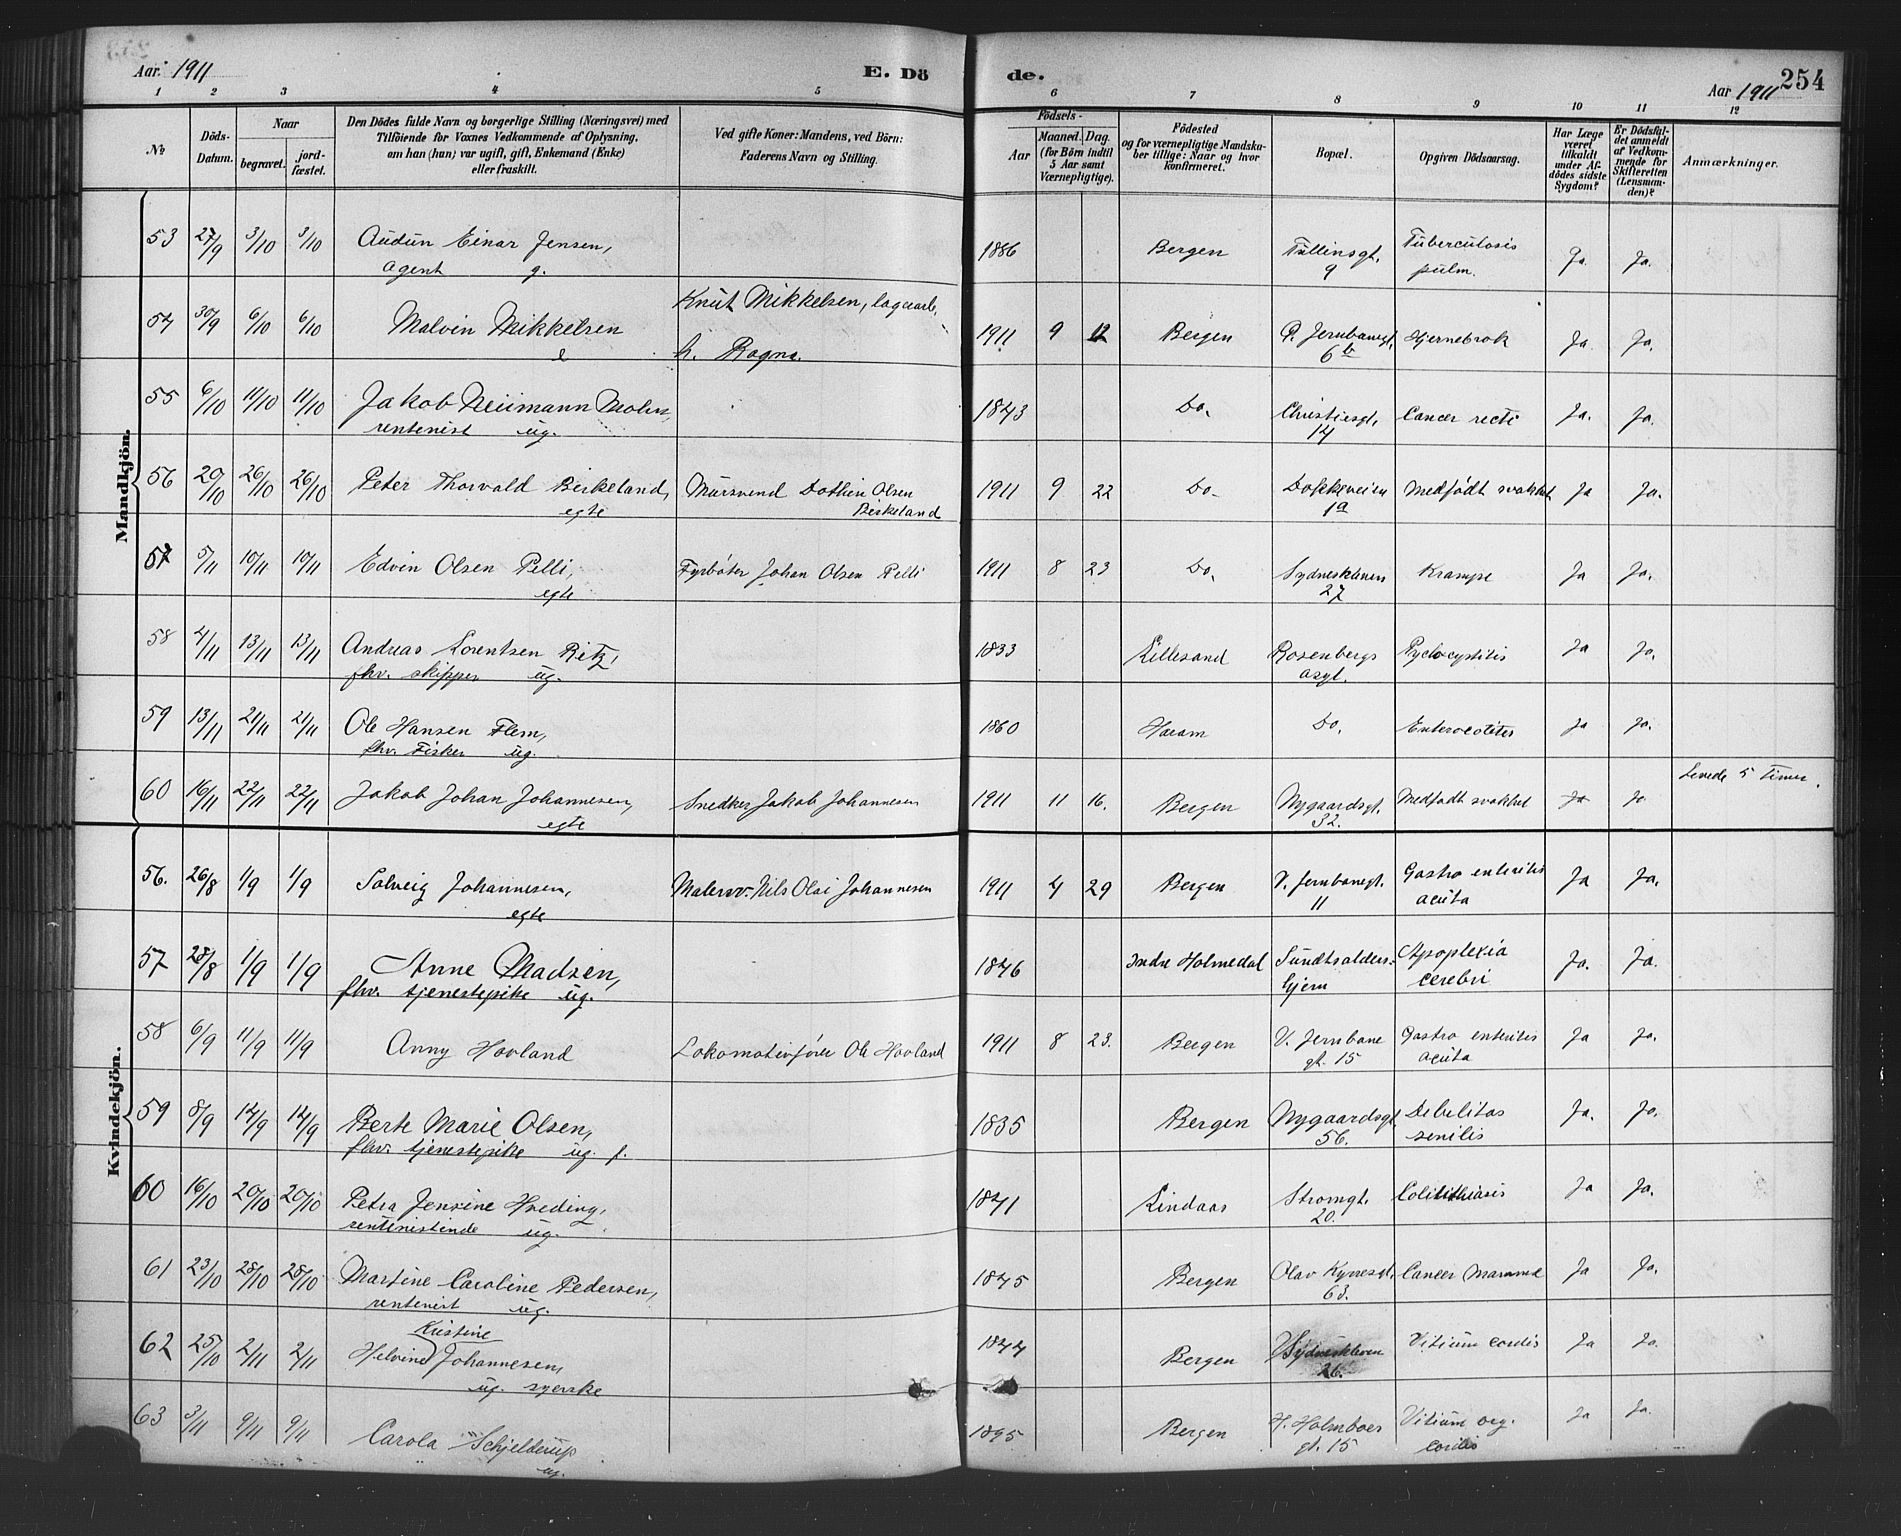 Aar. 1911 E. Dö de. Aar 1911 254
1 2 3 4 5 6 7 8 9 10 11 12
No
Döds-Datum.
Naar begravet. jordfæstet.
Den Dödes fulde Navn og borgerlige Stilling (Næringsvei) med
Tilföiende for Voxnes Vedkommende af Oplysning,
om han (hun) var ugift, gift, Enkemand (Enke)
eller fraskilt.
Ved gifte Koner: Mandens, ved Börn:
Faderens Navn og Stilling.
Födsels-
Aar Maaned. Dag.
(for Börn indtil
5 Aar samt
Værnepligtige).
Födested
og for værnepligtige Mandskaber tillige: Naar og hvor
konfirmeret.
Bopæl.
Opgiven Dödsaarsag.
Har Læge været tilkaldt under Afdödes sidste Sygdom?
Er Dödsfaldet anmeldt af Vedkommende for Skifteretten (Lensmanden)?
Anmærkninger.
Mandkjön.
53 27/9 3/10 3/10 Audun Einar Jensen, 1886 Bergen Tullinsgt. Tuberculosis Ja. Ja.
agent g. 9 pulm.
54 30/9 6/10 6/10 Malvin Mikkelsen Knut Mikkelsen, 1911 9 12 Bergen Jernbanegt. Hjernebrok Ja. Ja.
e h. Ragna. 6b
55 6/10 11/10 11/10 Jakob Neumann Mohn, 1843 Do. Christiesgt. Cancer recti Ja. Ja.
rentenist ug. 14
56 20/10 26/10 26/10 Peter Thorvald Birkeland, Mursvend Dothin Olsen 1911 9 22 Do. Dokkeveien Medfödt svakhet Ja Ja.
egte Birkeland 1a
57 5/11 10/11 10/11 Edvin Olsen Pelli, Fyrböter Johan Olsen Pelli 1911 8 23 Do. Sydneskleven Krampe Ja Ja.
egte 27
58 4/11 13/11 13/11 Andreas Lorentsen Ritz, 1833 Lillesand Rosenbergs Ja Ja.
fhv. skipper ug. asyl.
59 13/11 21/11 21/11 Ole Hansen Flem, 1860 Haram Do. Ja Ja.
fhv. Fisker ug.
60 16/11 22/11 22/11 Jakob Johan Johannesen, Snedker Jakob Johannesen 1911 11 16. Bergen Nygaardsgt. Medfödt svakhet Ja Ja Levede 5 Timer.
egte 32.
Kvindekjön.
56. 26/8 1/9 1/9 Solveig Johannesen, Malersv. Nils Olai Johannesen 1911 4 29 Bergen V. Jernbanegt. Gastro enteritis Ja Ja.
egte 11 acuta
57 28/8 1/9 1/9 Anne Madsen, 1846 Indre Holmedal Sundtsalders- Apoplexia Ja. Ja.
fhv. tjenestepike ug. hjem cerebri
58 6/9 11/9 11/9 Anny Hovland Lokomotivförer Ole Hovland 1911 8 23. Bergen V. Jernbane Gastro enteritis Ja Ja.
gt. 15 acuta
59 8/9 14/9 14/9 Berte Marie Olsen, 1835 Bergen Nygaardsgt. Debilitas Ja. Ja.
fhv. tjenestepike ug. f. 56. senilis
60 16/10 20/10 20/10 Petra Jensine Hveding, 1841 Lindaas Strömgt. Ja Ja.
rentenistinde ug. 20.
61 23/10 28/10 28/10 Martine Caroline Pedersen, 1845 Bergen Olav Kyrresgt. Cancer Mammae Ja Ja.
rentenist ug. 63.
62 25/10 2/11 2/11 Helvine Kristine Johannesen, 1844 Bergen Sydneskleven Vitium cordis Ja Ja.
ug. syerske 26.
63 3/11 9/11 9/11 Carola Schjelderup 1895 Bergen H. Holmboes Vitium org. Ja Ja.
ug. gt. 15 cordis